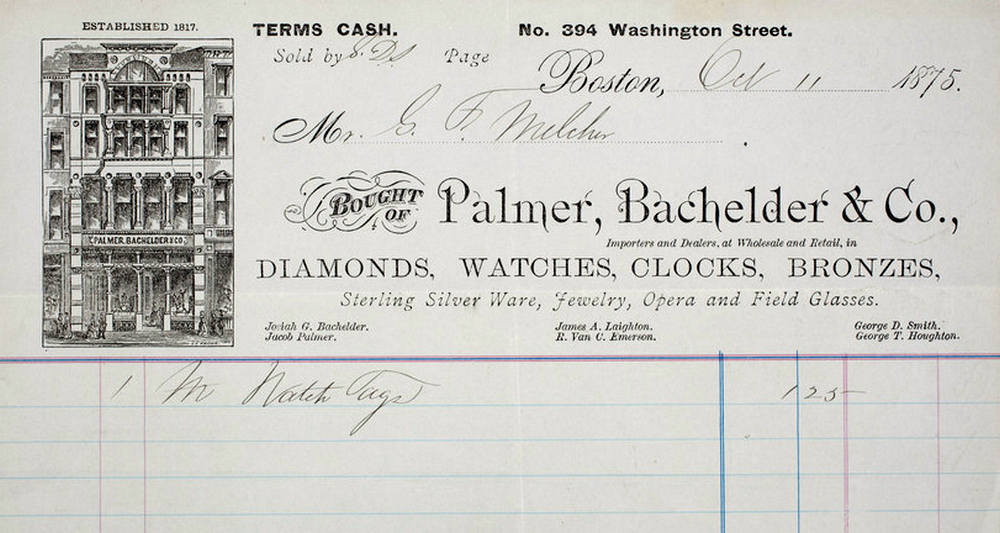 ESTABLISHED 1817.
TERMS CASH. No. 394 Washington Street.
Sold by Page
Boston, Oct 11 1875.
Mr. G. F. Melcher
BOUGHT OF Palmer, Bachelder & Co.,
PALMER, BACHELDER & CO.
Importers and Dealers, at Wholesale and Retail, in
DIAMONDS, WATCHES, CLOCKS, BRONZES,
Sterling Silver Ware, Jewelry, Opera and Field Glasses.
Josiah G. Bachelder. James A. Laighton. George D. Smith.
Jacob Palmer. R. Van C. Emerson. George T. Houghton.
1 M Watch Tags 1 25